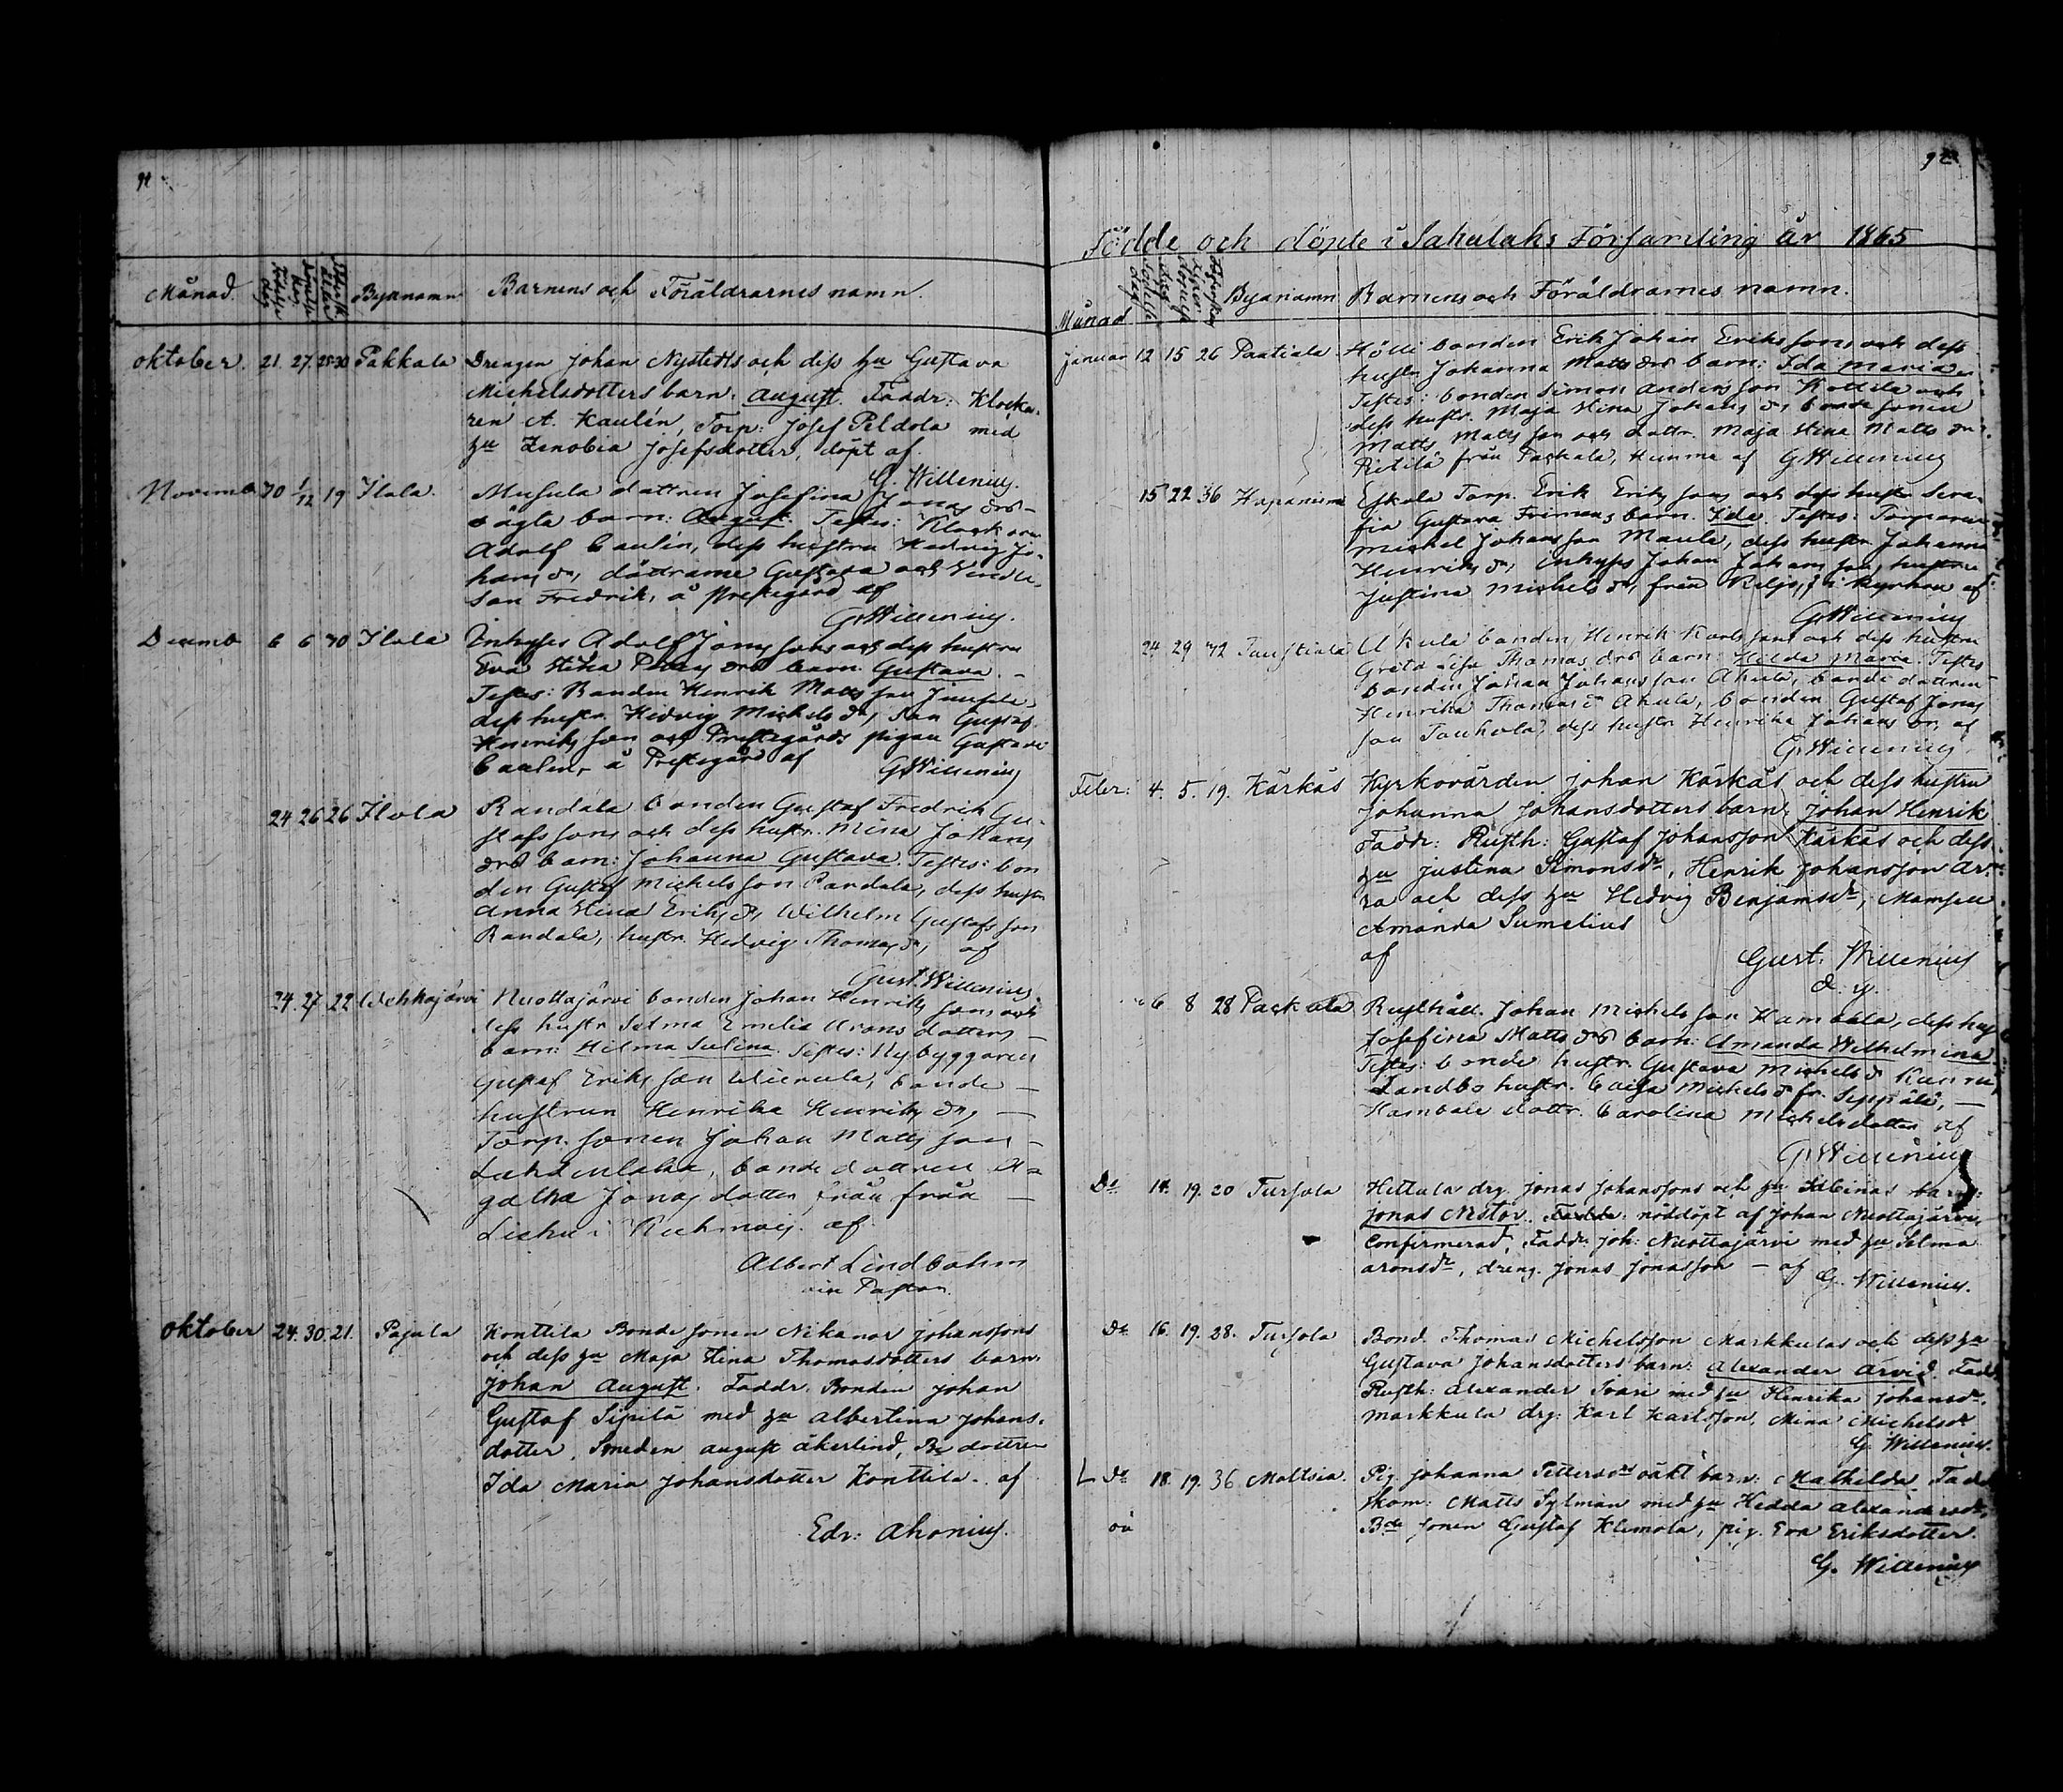 Månad Födelse dag Byanamn Barnens och Föräldrarnes namn.
oktober. 21. 27. 25-30 Pakkala Drengen Johan Nystedts och dess hu Gustava
Michelsdotters barn: August. Faddr: Klocka-
ren A. Kaulén, Torp: Josef Peldola med
hu Zenobia Josefsdotter, döpt af
G. Willenius.
Novemb 30 1/12 19 Ilola. Musula dottren Josefina Jonas drs
oägta barn: August. Testes: Klockaren
Adolf Caulén, dess hustru Hedvig Jo-
hans dr, döttrarne Gustava och
son Fredrik, å Prestegård af
G. Willenius.
Decemb 6 6 30 Ilola Inhyses Adolf Jonas sons och dess hustru
Eva Stina drs barn. Gustava. -
Testes: Bonden Henrik Matts son
dess hustr. Hedvig Michels dr, son Gustaf
Henriks son och Prestegårds pigan Gustava
Caulén, å Prestegård af
G. Willenius
24 26 26 Ilola Randala bonden Gustaf Fredrik Gu-
stafs sons och dess hustr. Mina Johans
drs barn: Johanna Gustava. Testes: bon
den Gustaf Michels son Pandala, dess hustr
Anna Stina Eriks dr, Wilhelm Gustafs son
Randala, hustr. Hedvig Thomas dr, af
Gust. Willenius.
24. 27. 22 Wehkajärvi Nuottajärvi bonden Johan Henriks sons och
dess hustr Selma Emelia Arons dotters
barn: Hilma Sulina. Testes: Nybyggaren
Gustaf Eriks son, bonde
hustrun Henrika Henriks dr, -
Torp. sonen Johan Matts son -
bonde dottren A-
gatha Jonas dotter från -
i af
Albert Lindbohm
vice Pastor.
oktober 24. 30. 21. Pajula Konttila Bonde sonen Nikanor Johanssons
och dess hu Maja Stina Thomasdotters barn.
Johan August. Faddr. Bonden Johan
Gustaf Sipilä med hu Albertina Johans-
dotter, Smeden August Åkerlind, Be dottren
Ida Maria Johansdotter Konttila. af
Edv: Ahonius.
Födde och döpte i Sahalahs Församling år 1865
Månad Byanamn Barnens och Föräldrarnes namn.
Januar 12 15 26 Paatiala Hölli bonden Erik Johan Eriks sons och dess
hustr. Johanna Matts drs barn: Ida Maria.
Testes: bonden Simon Anders son Kottila och
dess hustr. Maja Stina Johans dr, bonde sonen
Matts Matts son och dottr. Maja Stina Matts dr
Pietilä från Packala, hemma af G. Willenius
15 22 36 Hapaniemi Eskola Torp. Erik Eriks sons och dess hustr Sera-
fia Gustava Frimans barn. Ida. Testes: Torparen
Michel Johansson Maula, dess hustr. Johanna
Henriks dr, Inhyses Johan Johans son, hustru
Justina Michels dr, från i kyrkan af
G. Willenius
24 29 42 Taustiala Ukula bonden Henrik Karls sons och dess hustru
Greta Lisa Thomas drs barn: Hilda Maria. Testes
bonden Johan Johansson Ahula, bonde dottren
Henrika Thomas dr Ahula, bonden Gustaf Jonas
son Tauhola, dess hustr Henrika Johans dr, af
G. Willenius.
Febr: 4. 5. 19. Kärkäs Kyrkovärden Johan Kärkäs och dess hustru
Johanna Johansdotters barn. Johan Henrik
Faddr: Rusth: Gustaf Johansson Kärkäs och dess
hu Justina Simonsdr, Henrik Johansson Ar-
ra och dess hu Hedvig Benjamsdr, Mamsell
Amanda Sumelius
af Gust. Willenius
d. y.
6 8 28 Packala Rusthåll. Johan Michels son Hambala, dess hus
Josefina Matts drs barn: Amanda Wilhelmina.
Testes: bonde hustr. Gustava Michels dr
Landbo hustr. Caisa Michels dr fr. Seppälä, -
Hambala dottr. Carolina Michelsdotter af
G. Willenius
Do 14. 19. 20 Tursola Hettula drg. Jonas Johanssons och hu Albinas barn:
Jonas Nestor. Faddr: nöddöpt af Johan Nuottajärvi,
Confirmerad, Faddr. Joh: Nuottajärvi med hu Selma
Aronsdr, dreng. Jonas Jonasson - af G. Willenius.
Do 16. 19. 28. Tursola Bond. Thomas Michelsson Markkulas och dess hu
Gustava Johansdotters barn: Alexander Arvid. Fadd
Rusth: Alexander Isari med hu Henrika Johansdr.
Markkula drg: Karl Karlsson, Mina Michelsdr
G. Willenius.
L Do 18 19. 36 Moltsia. Pig. Johanna Pettersdrs oäkt barn: Mathilda. Fadd
Skom: Matts Sylman med hu Hedda Alexandersdr,
oä Bde sonen Gustaf Klemola, pig. Eva Eriksdotter.
G. Willenius